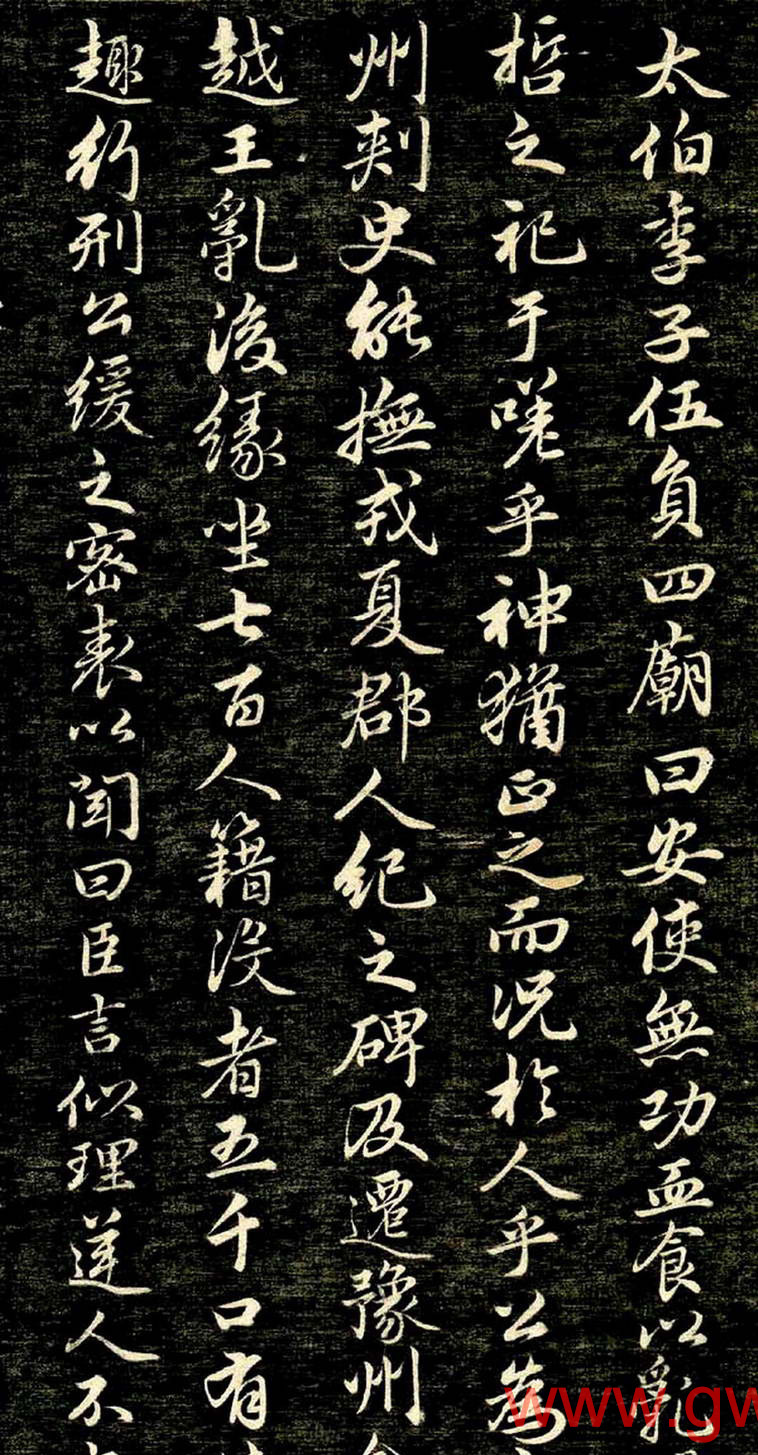 太伯季子伍負四廟曰安使無功血食以亂
哲之祀于嗟乎神猶正之而況於人乎公為
州刺史能撫戎夏郡人紀之碑及遷豫州
越王亂後緣坐七百人籍沒者五千口有
趣行刑公緩之密表以聞曰臣言似理逆人不
www.gw